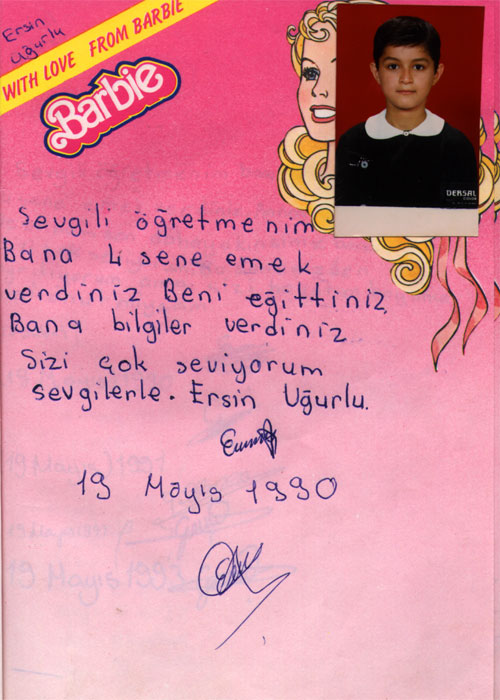 Ersin
Uğurlu
WITH LOVE FROM BARBIE
Barbie
DERSAL
Sevgili öğretmenim
Bana 4 sene emek
verdiniz Beni eğittiniz
Bana bilgiler verdiniz
Sizi çok seviyorum
sevgilerle. Ersin Uğurlu.
19 Mayıs 1990
19 Mayıs 1993